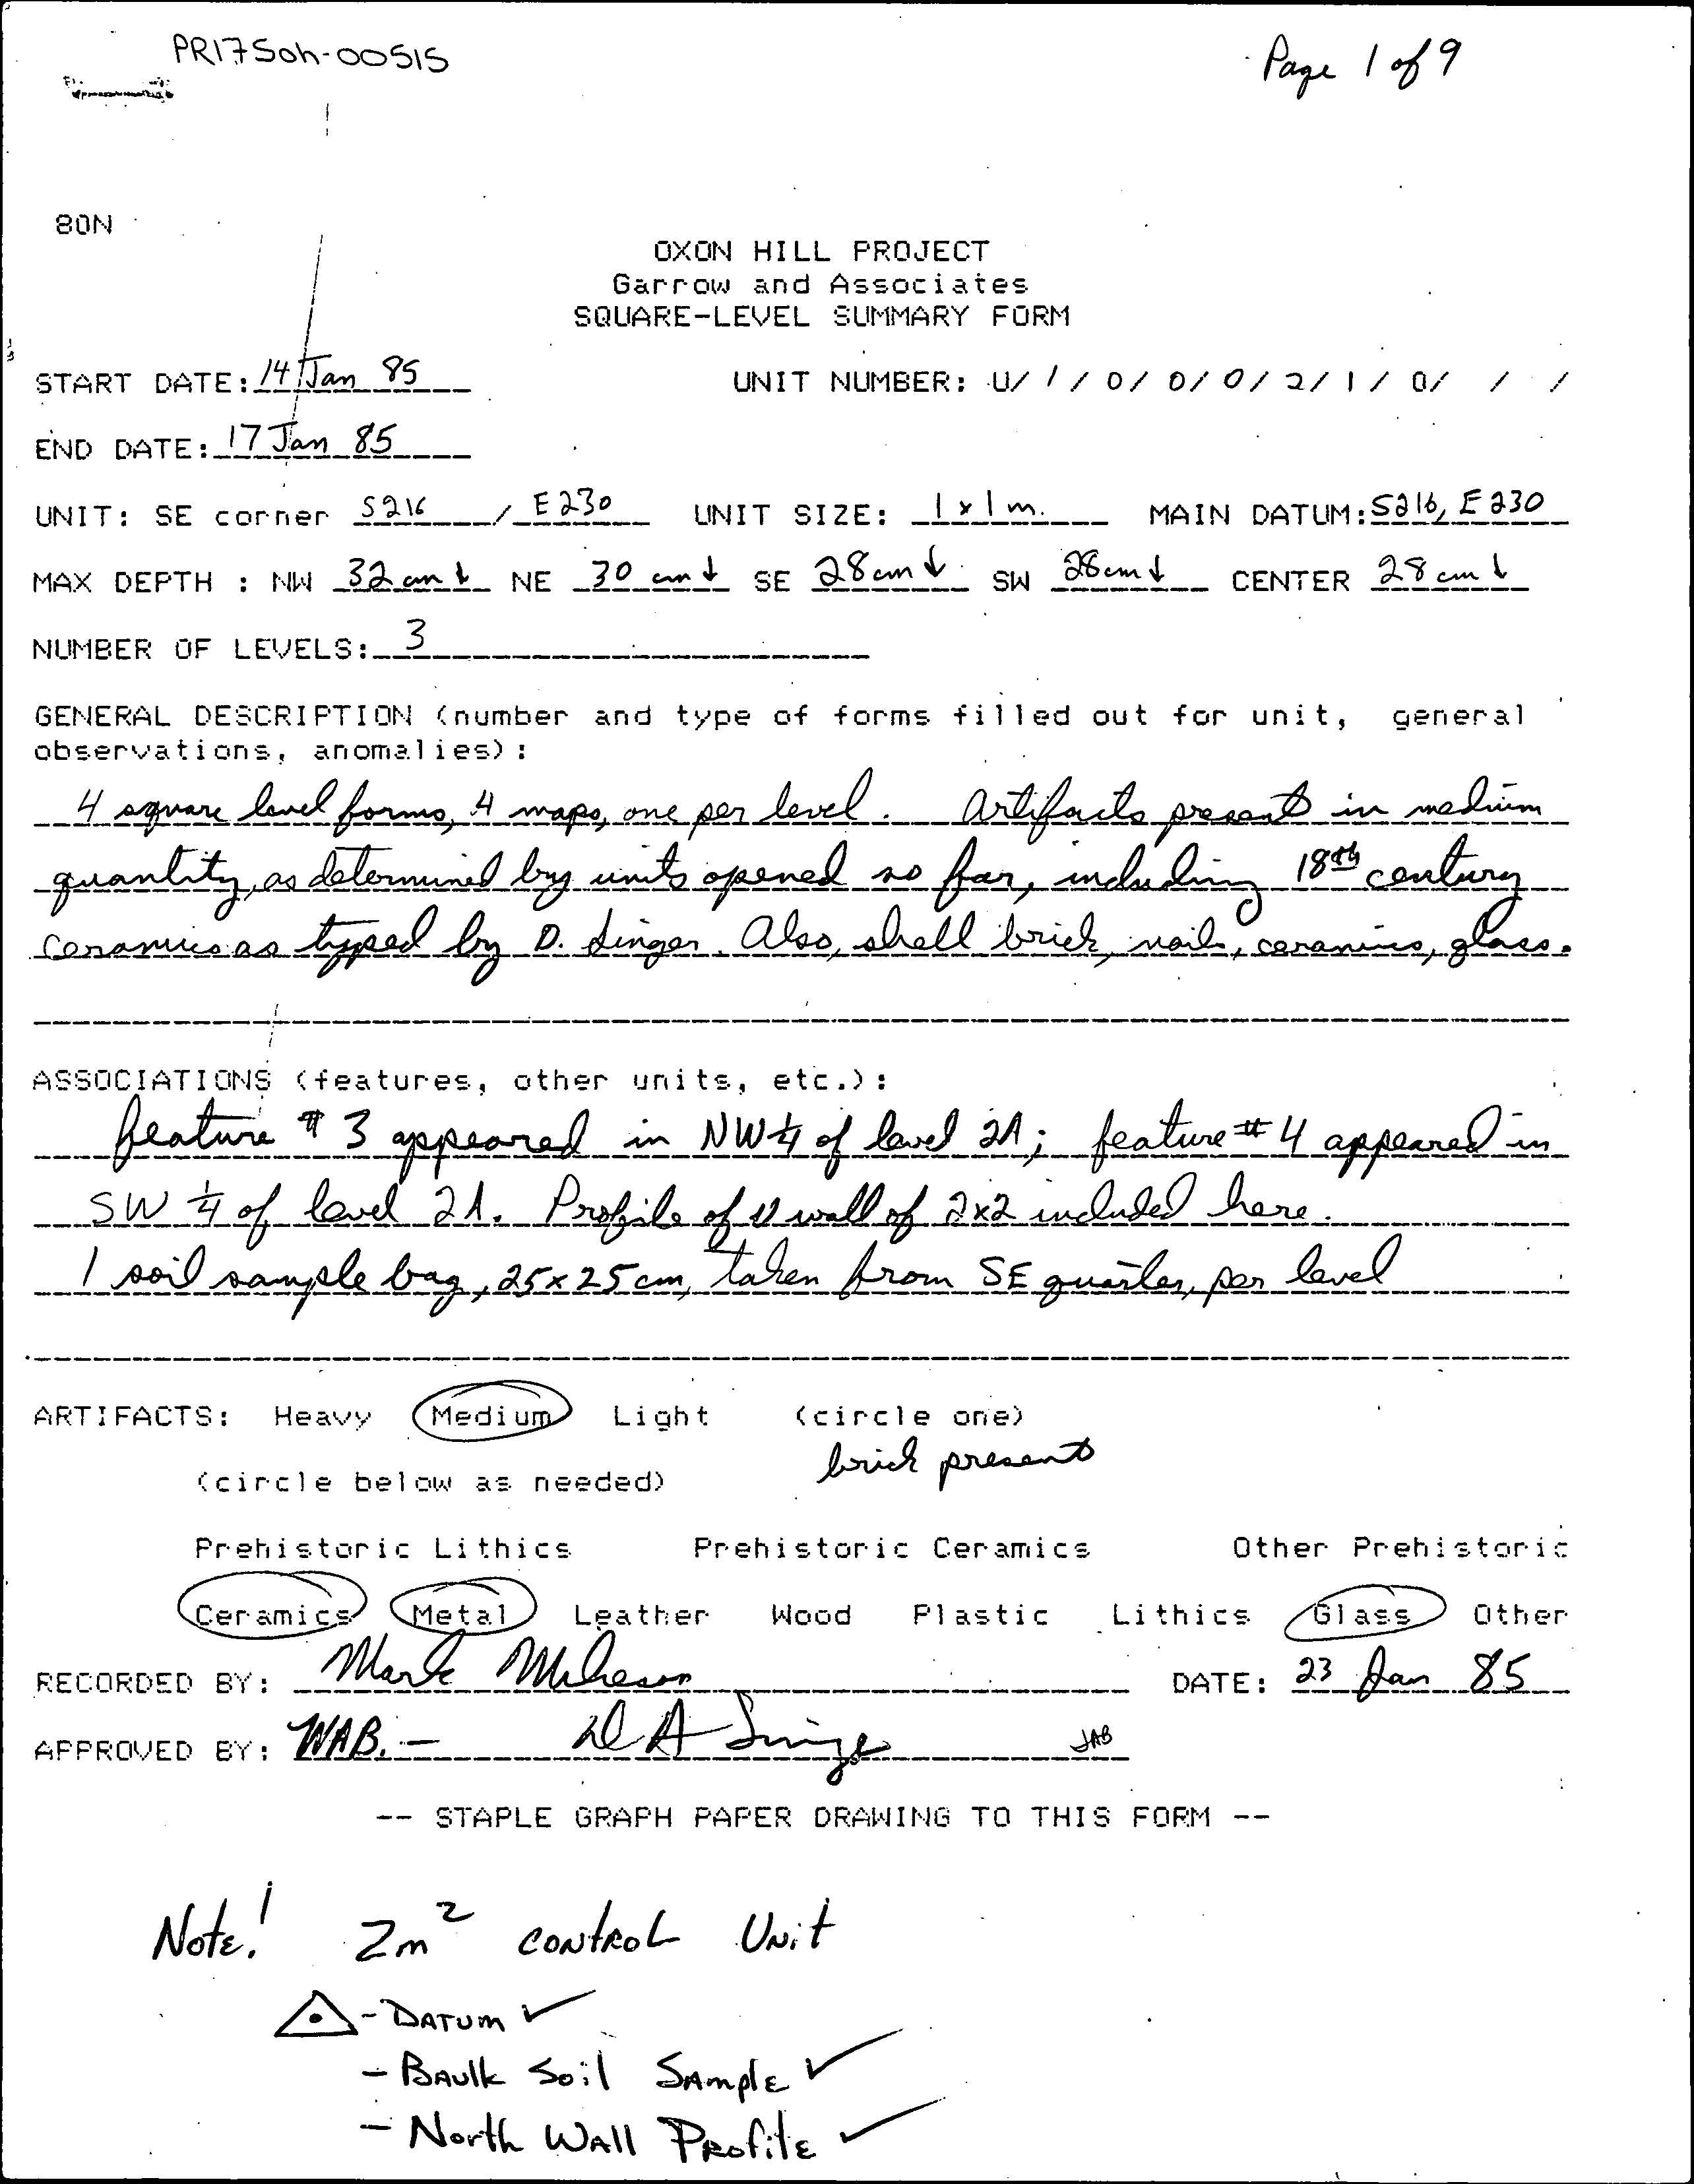 PR175oh-00515
Page 1 of 9
80N
OXON HILL PROJECT
Garrow and Associates
SQUARE-LEVEL SUMMARY FORM
START DATE: 14 Jan 85 UNIT NUMBER: U/ 1 / 0/ 0/ 0/ 2/ 1 / 0/ / /
END DATE: 17 Jan 85
UNIT: SE corner S216 / E230 UNIT SIZE: 1x1m. MAIN DATUM: S216, E230
MAX DEPTH : NW 32 cm↓ NE 30 cm↓ SE 28cm↓ SW 28cm↓ CENTER 28 cm↓
NUMBER OF LEVELS: 3
GENERAL DESCRIPTION (number and type of forms filled out for unit, general
observations, anomalies):
4 square level forms, 4 maps, one per level. Artifacts present in medium
quantity, as determined by units opened so far, including 18th century
ceramics as typed by D. Singer. Also, shell brick, nails, ceramics, glass.
ASSOCIATIONS (features, other units, etc.):
feature # 3 appeared in NW 1/4 of level 2A; feature # 4 appeared in
SW 1/4 of level 2A. Profile of N wall of 2x2 included here.
1 soil sample bag, 25x25 cm, taken from SE quarter, per level
ARTIFACTS: Heavy Medium Light (circle one)
brick present
(circle below as needed)
Prehistoric Lithics Prehistoric Ceramics Other Prehistoric
Ceramics Metal Leather Wood Plastic Lithics Glass Other
RECORDED BY: Mark DATE: 23 Jan 85
APPROVED BY: WAB. - D A Singer JAB
-- STAPLE GRAPH PAPER DRAWING TO THIS FORM --
Note! 2m² CONTROL UNit
- DATUM ✓
- BAulk Soil SAmplE ✓
- North WAll PRofilE ✓